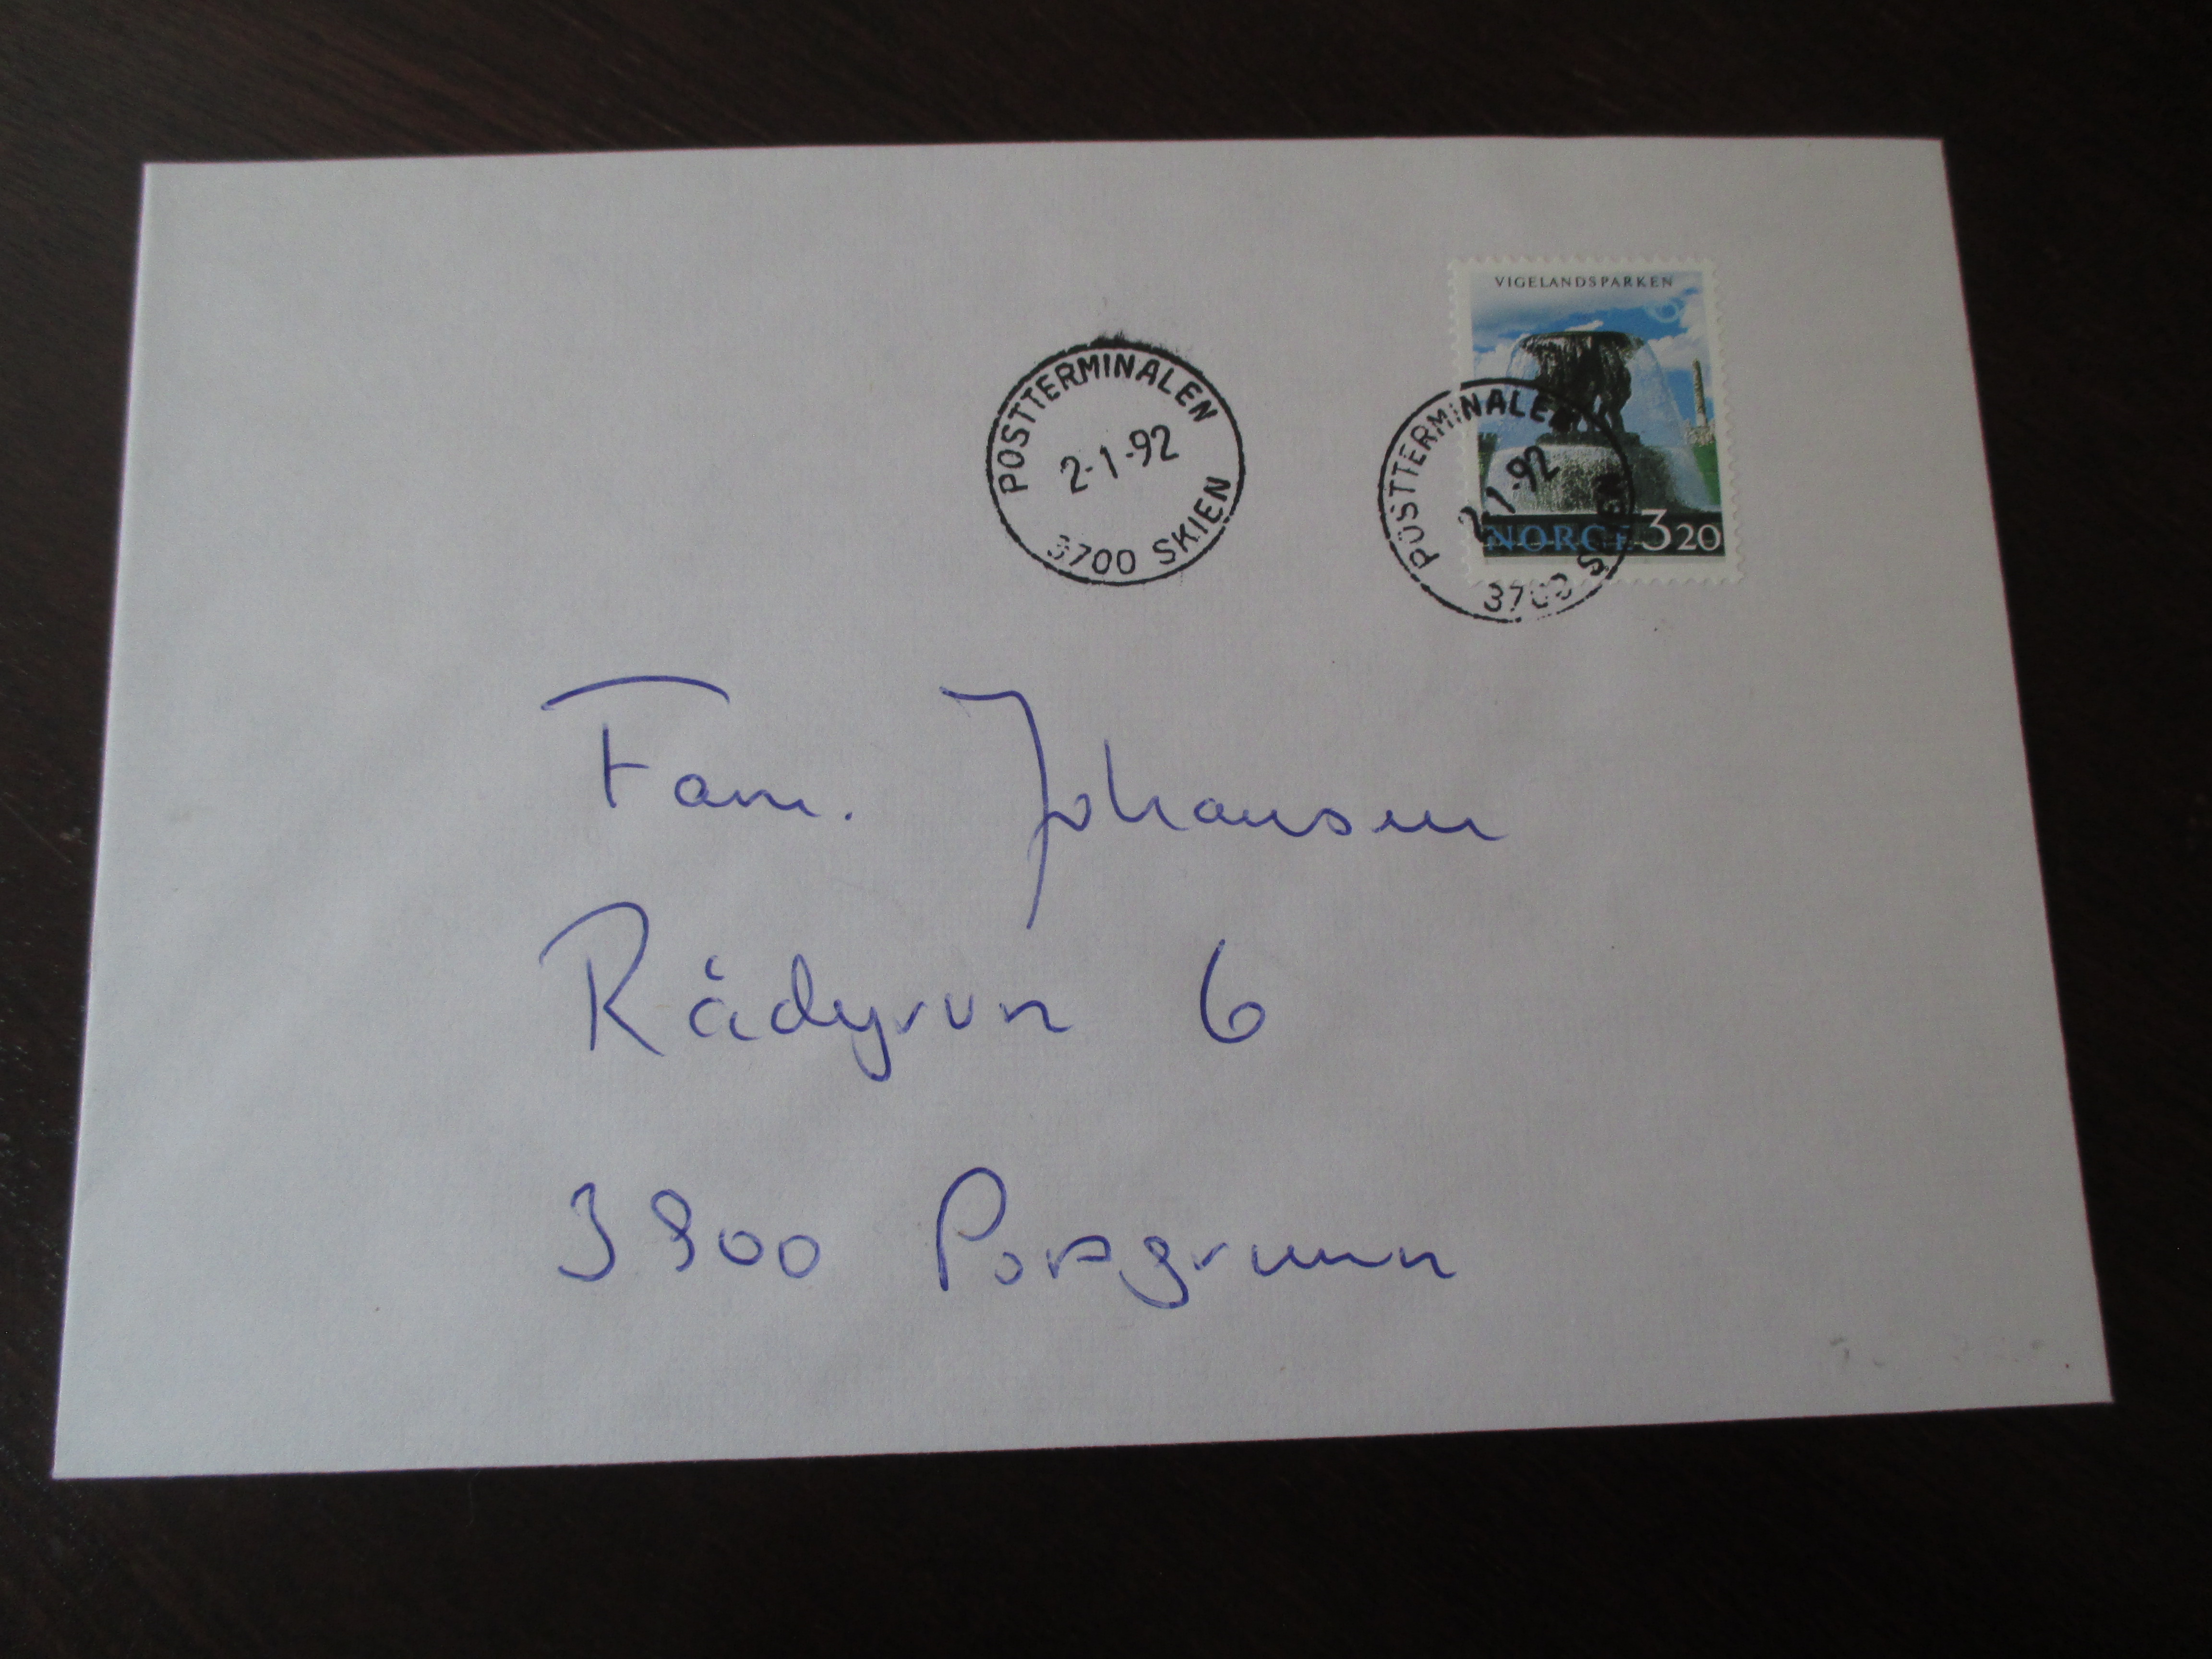 VIGELANDSPARKEN
NORGE 3 20
POSTTERMINALEN
2-1-92
3700 SKIEN
POSTTERMINALEN
2-1-92
3700 SKIEN
Fam. Johansen
Rådyrvn 6
3900 Porsgrunn